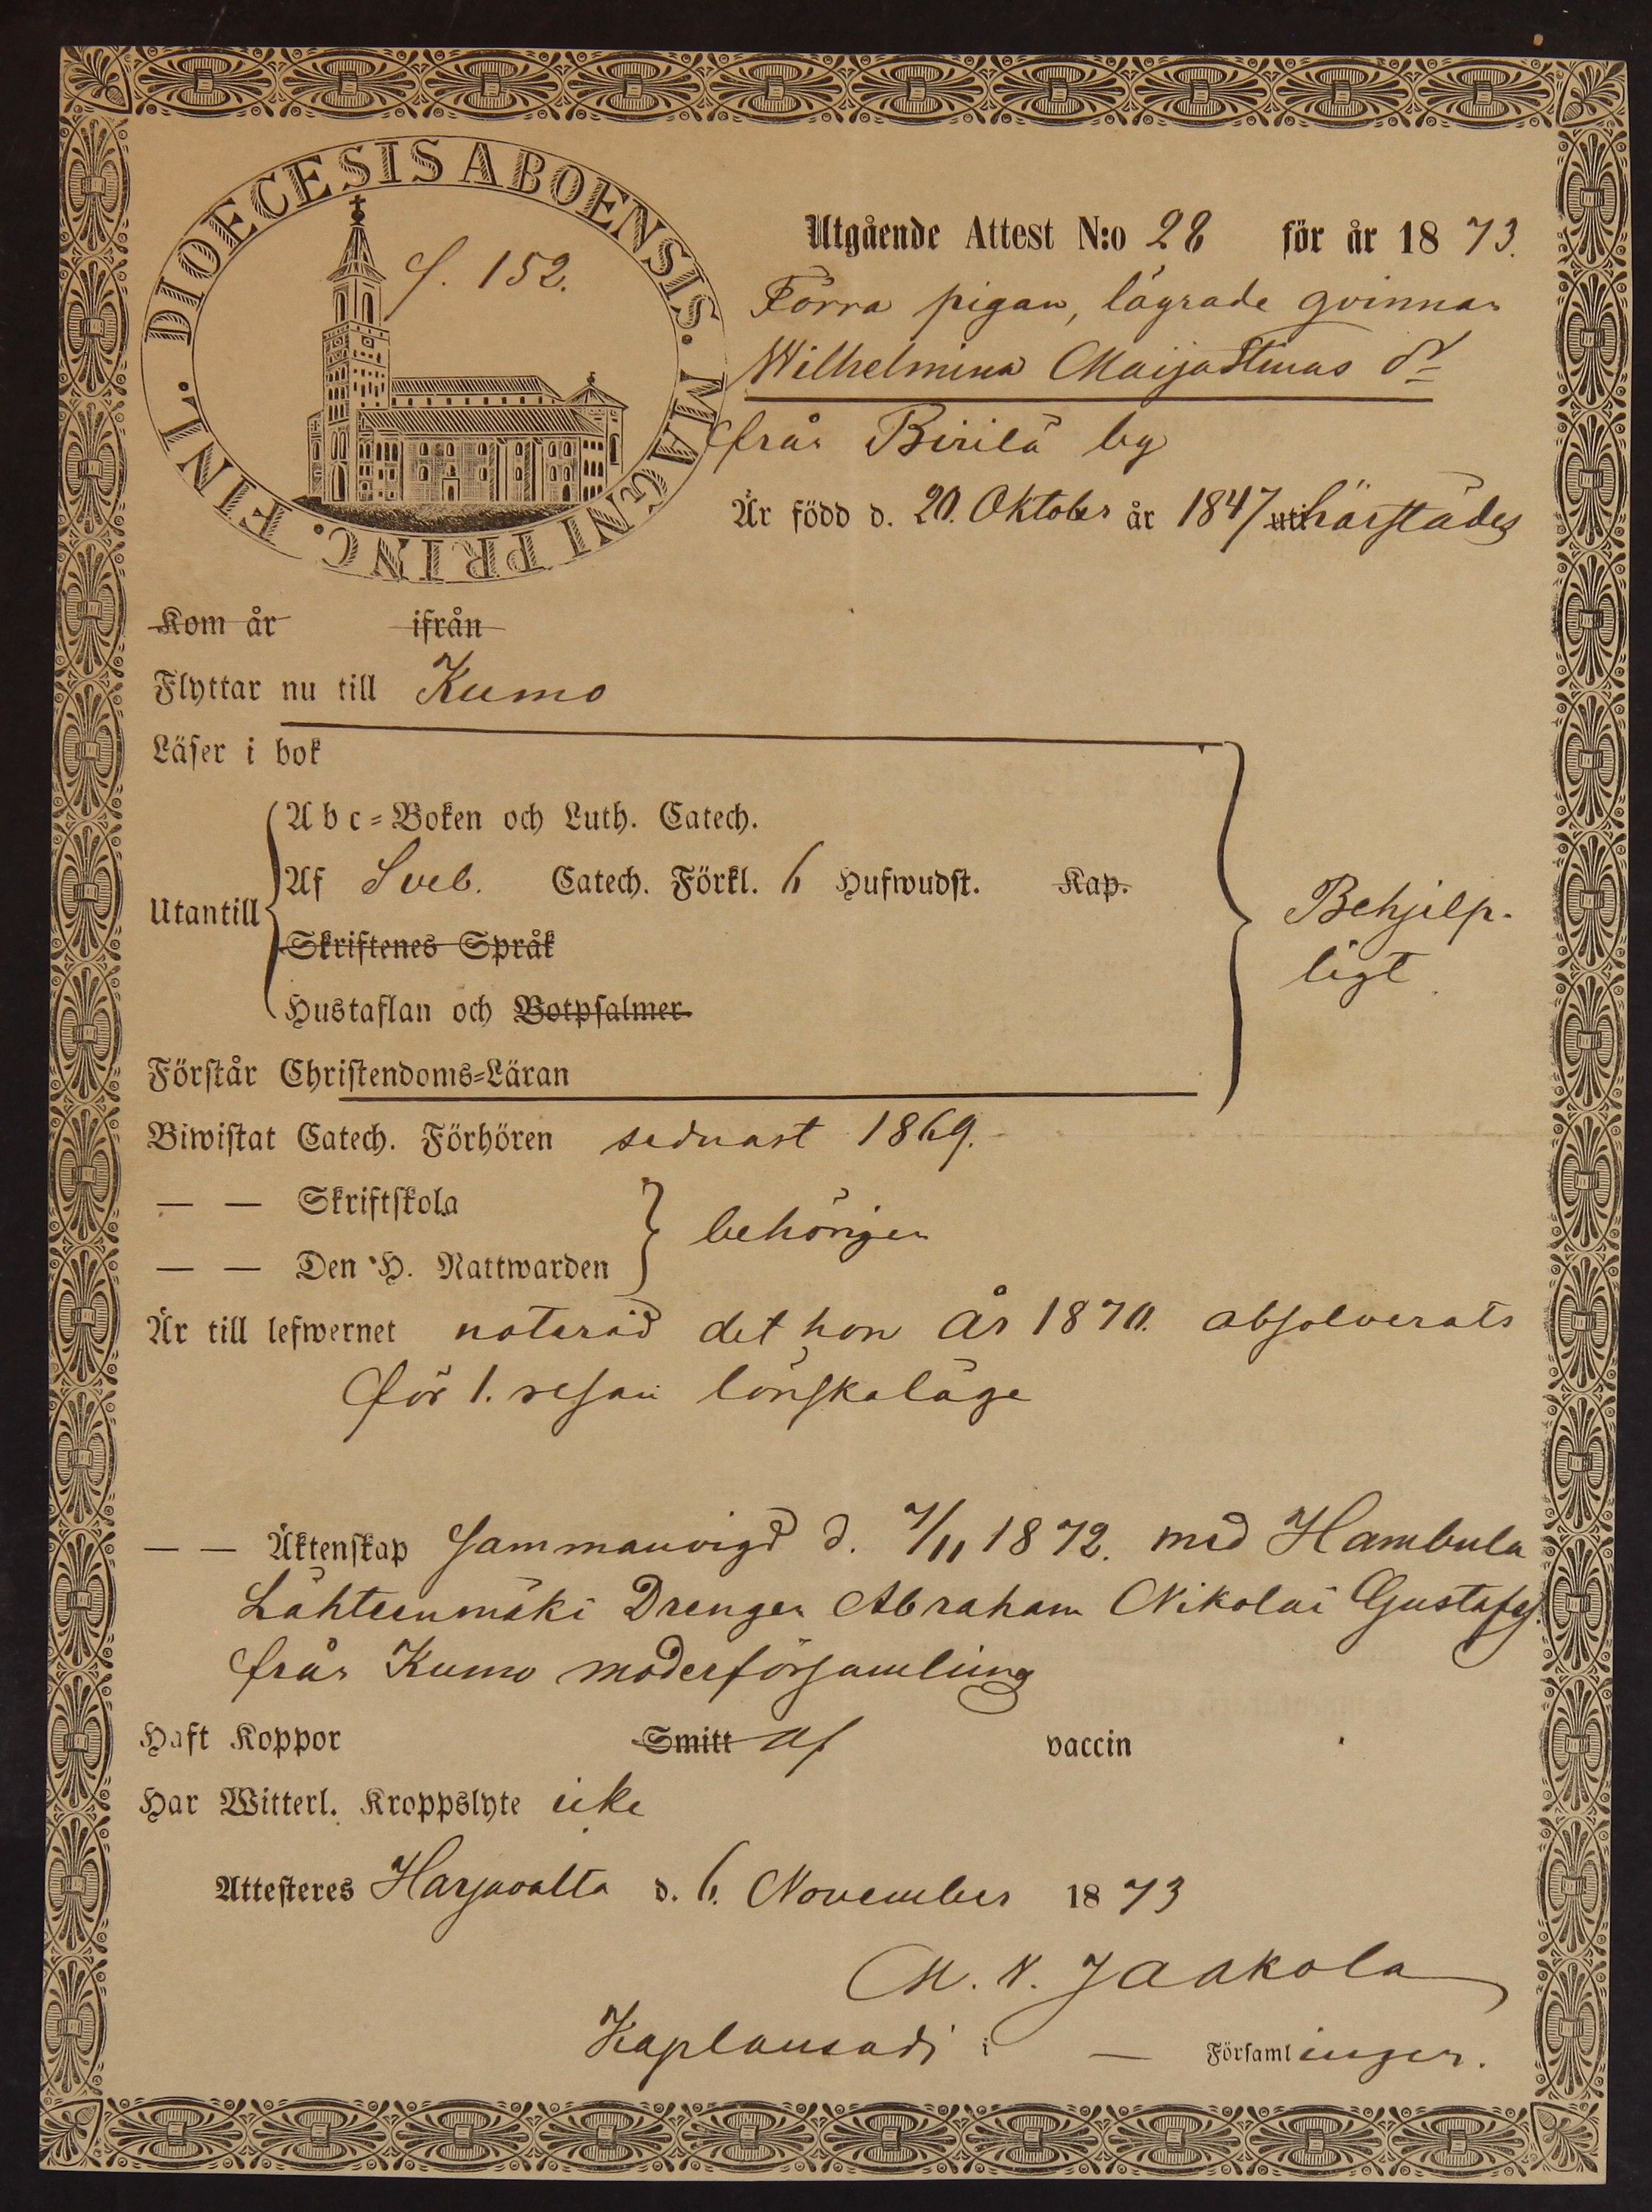 DIOECESIS ABOENSIS. MAGNI PRINC. FINL.
f. 152.
Utgående Attest N:o 28 för år 1873.
Förra pigan, lägrade qvinnan
Wilhelmina MaijaStinas dr
från Birilä by
Är född d. 20. Oktober år 1847 uti härstädes
Kom år ifrån
Flyttar nu till Kumo
Läser i bok
Utantill
Abc-Boken och Luth. Catech.
Af Sveb. Catech. Förkl. 6 Hufwudst. Kap.
Skriftenes Språk
Hustaflan och Botpsalmer
Behjelp-
ligt
Förstår Christendoms-Läran
Biwistat Catech. Förhören sednast 1869.
— — Skriftskola
— — Den H. Nattwarden
behörigen
Är till lefwernet noterad det hon år 1870. absolverats
för 1. resan lönskaläge
— — Äktenskap Sammanvigd d. 7/11 1872. med Hambula
Lähteenmäki Drengen Abraham Nikolai Gustafss.
från Kumo moderförsamling
Haft Koppor Smitt af vaccin
Har Witterl. Kroppslyte icke
Attesteres Harjavalta d. 6. November 1873
M. N. Jaakola
Kaplansadj. i — Församlingen.